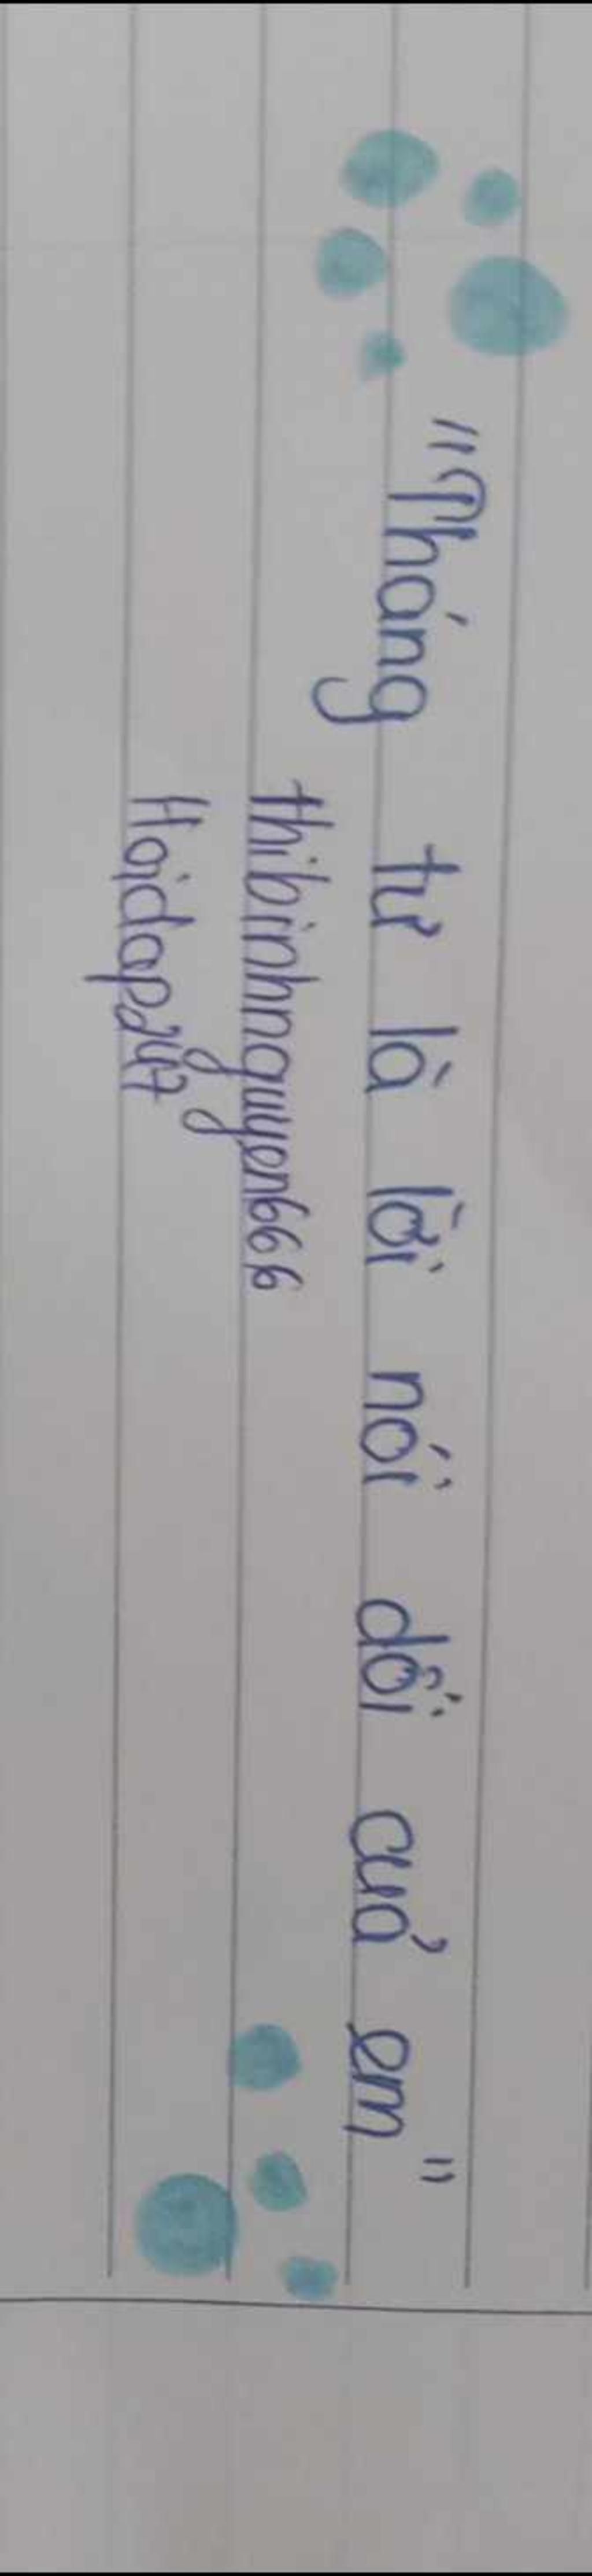 "Tháng tư là lời nói dối của em"
thibinhnguyen666
Hoidap247